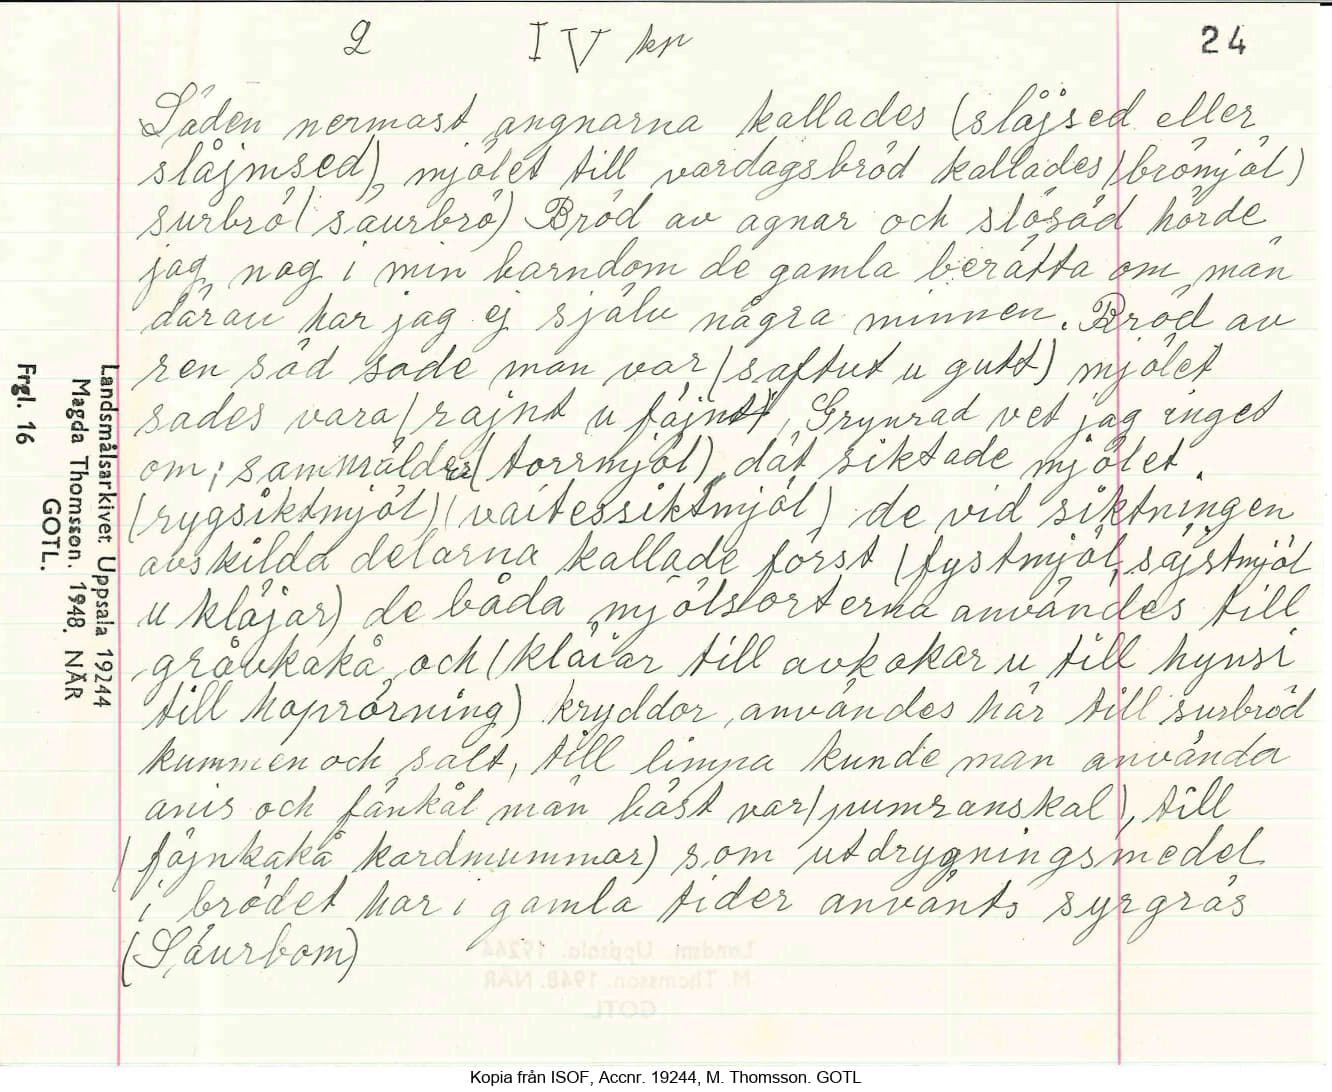 2 IV kp 24
Säden nermast angnarna kallades (slåjsed eller
slåjmsed), mjölet till vardagsbröd kallades (brömjöl)
surbrö (säurbrö) Bröd av agnar och slösäd hörde
jag nog i min barndom de gamla berätta om män
därau har jag ej själv några minnen. Bröd av
ren säd sade man var (saftut u gutt) mjölet
sades vara (rajnt u fäjntt), Grynrad vet jag inget
om; sammälder (torrmjöl), dät siktade mjölet.
(rygsiktmjöl) (vaitessiktmjöl) de vid siktningen
avskilda delarna kallade först (fystmjöl, säjstmjöl
u kläjar) de båda mjölsorterna användes till
gråvkakå och (kläiar till avkokar u till hynsi
till hoprörning) kryddor användes här till surbröd
kummen och salt, till limpa kunde man använda
anis och fänkål män bäst var (pumranskal), till
(fäjnkakå kardmummar) som utdrygningsmedel
i brödet har i gamla tider använts syrgräs
(Säurbom)
Landsmålsarkivet Uppsala 19244
Magda Thomsson. 1948. NÄR
GOTL.
Frgl. 16
Landsm. Uppsala. 19244
M. Thomsson. 1948. NÄR
GOTL.
Kopia från ISOF, Accnr. 19244, M. Thomsson. GOTL